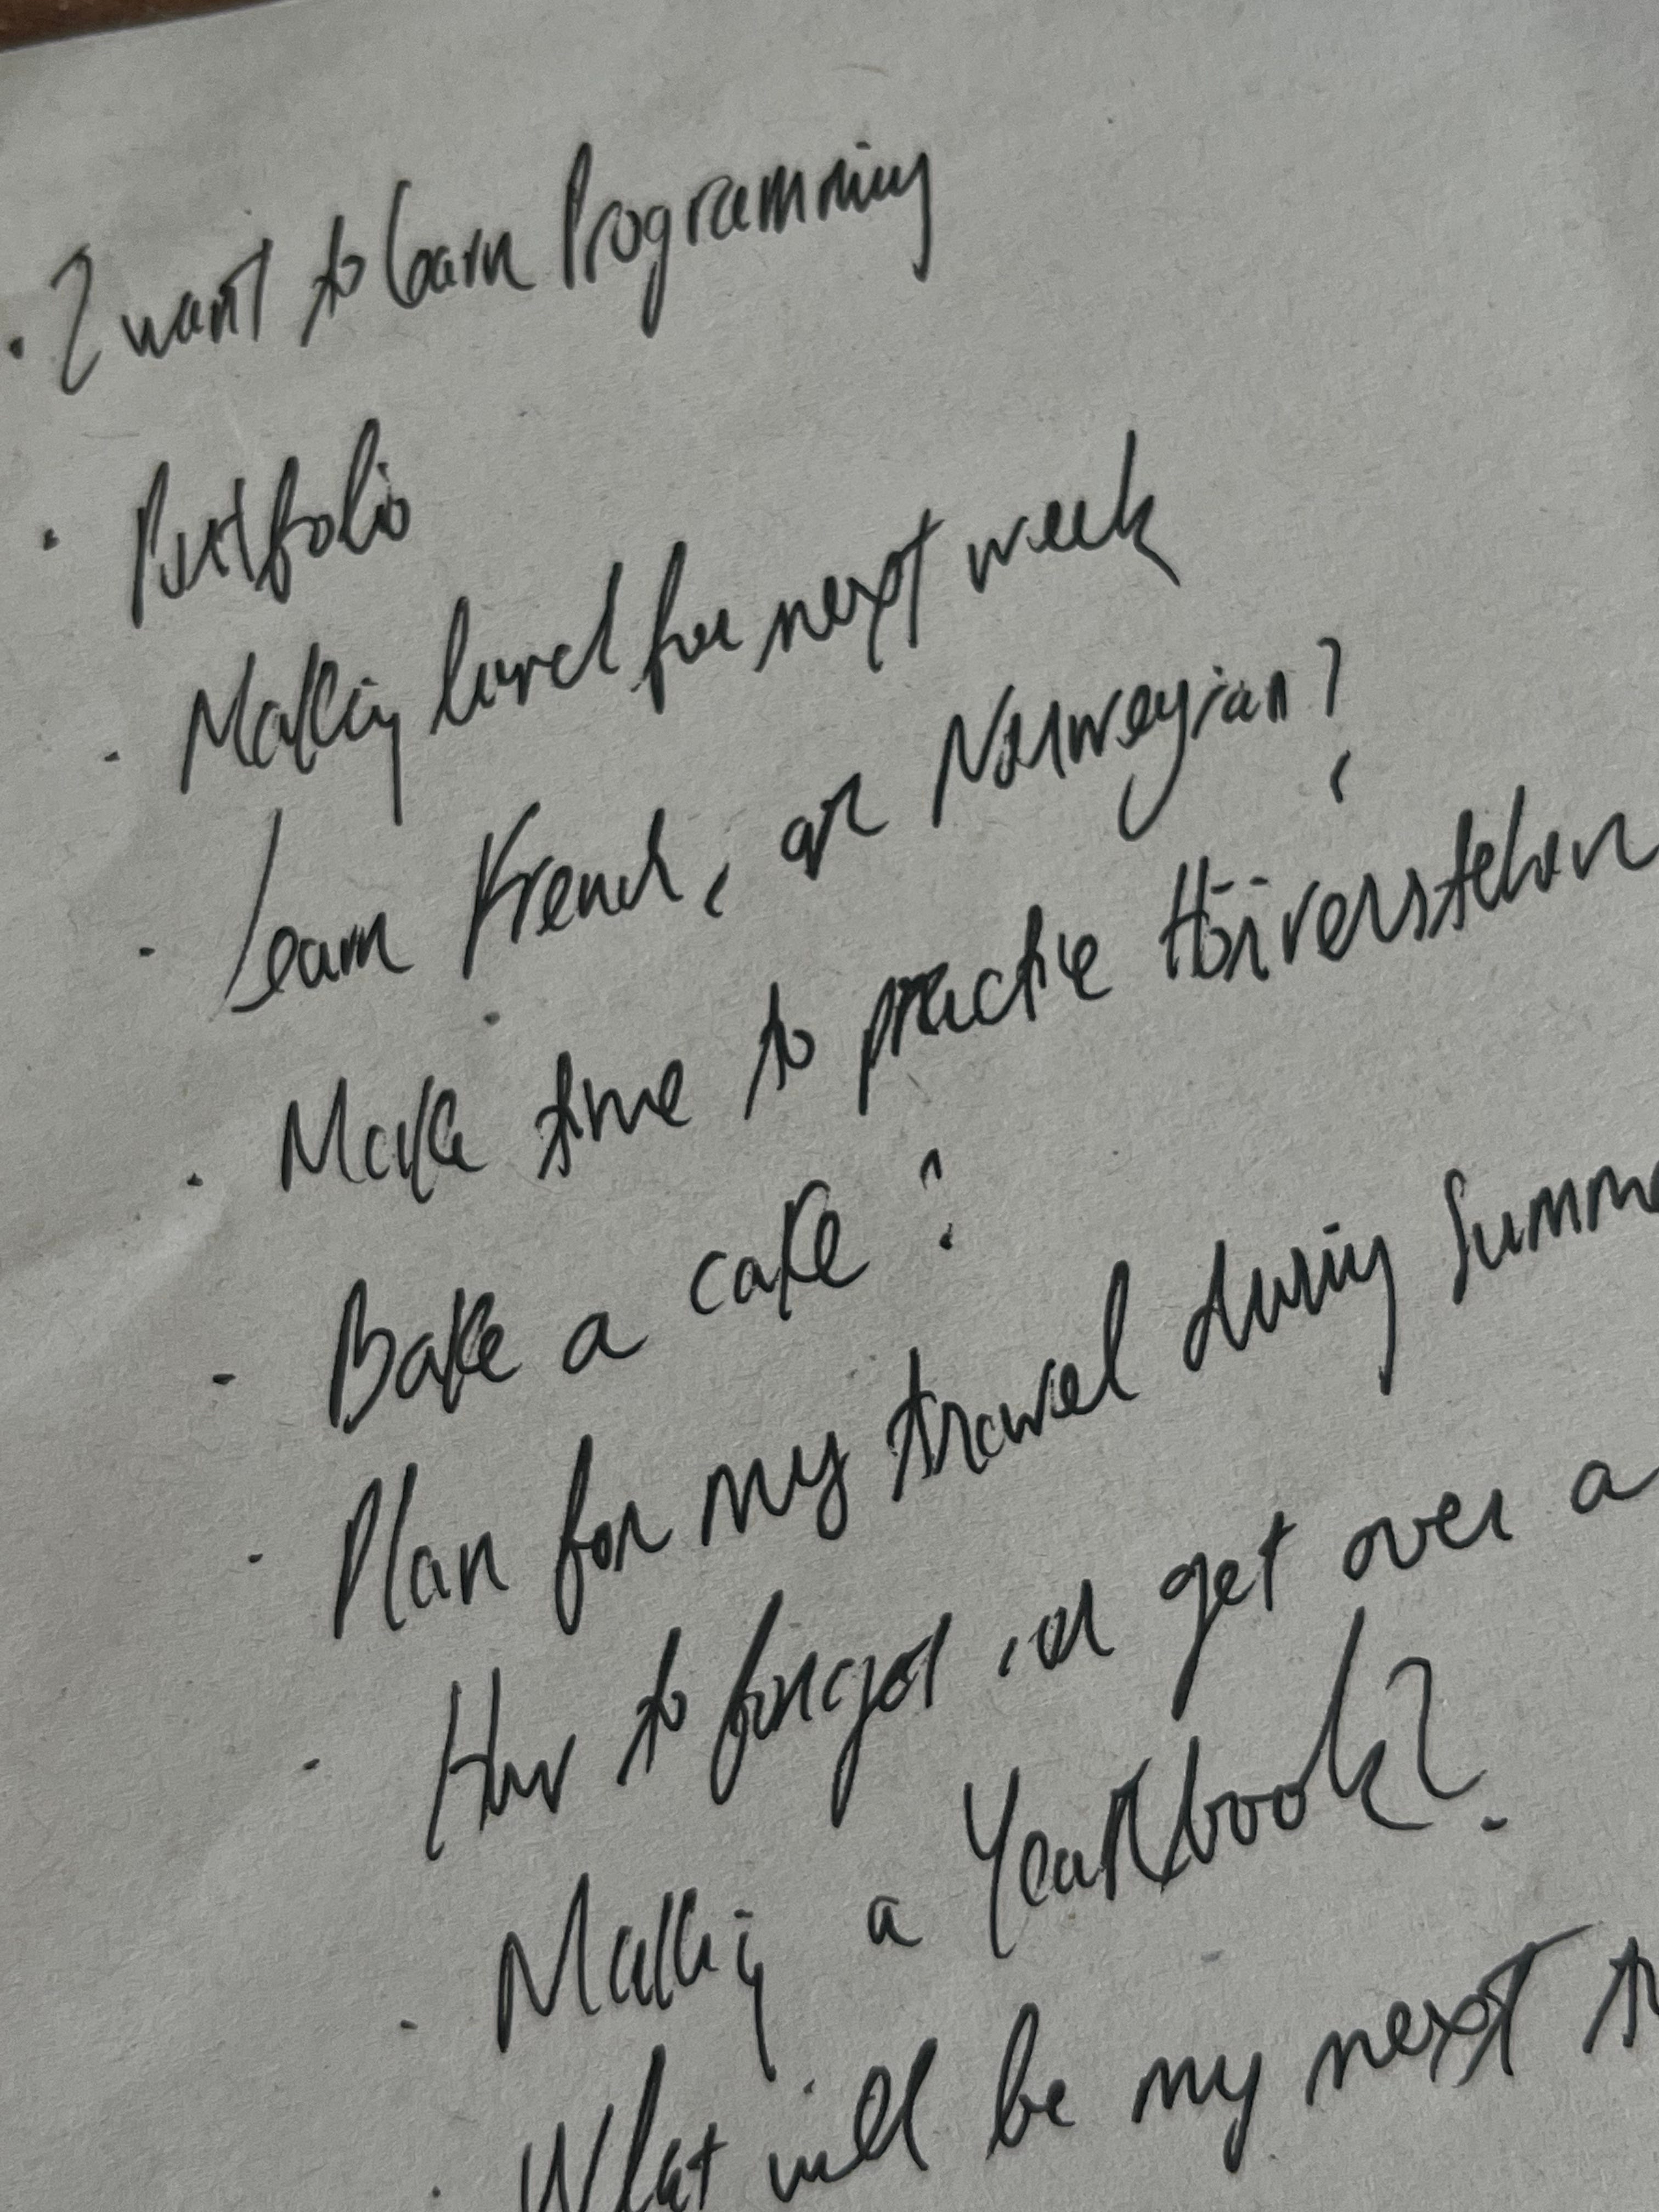 · I want to learn Programming
· Portfolio
· Making lunch for next week
· Learn French, or Norwegian?
· Make time to practice Hörverstehen
· Bake a cake?
· Plan for my travel during Summe
· How to forgot, or get over a
· Making a Yearbook?
· What will be my next